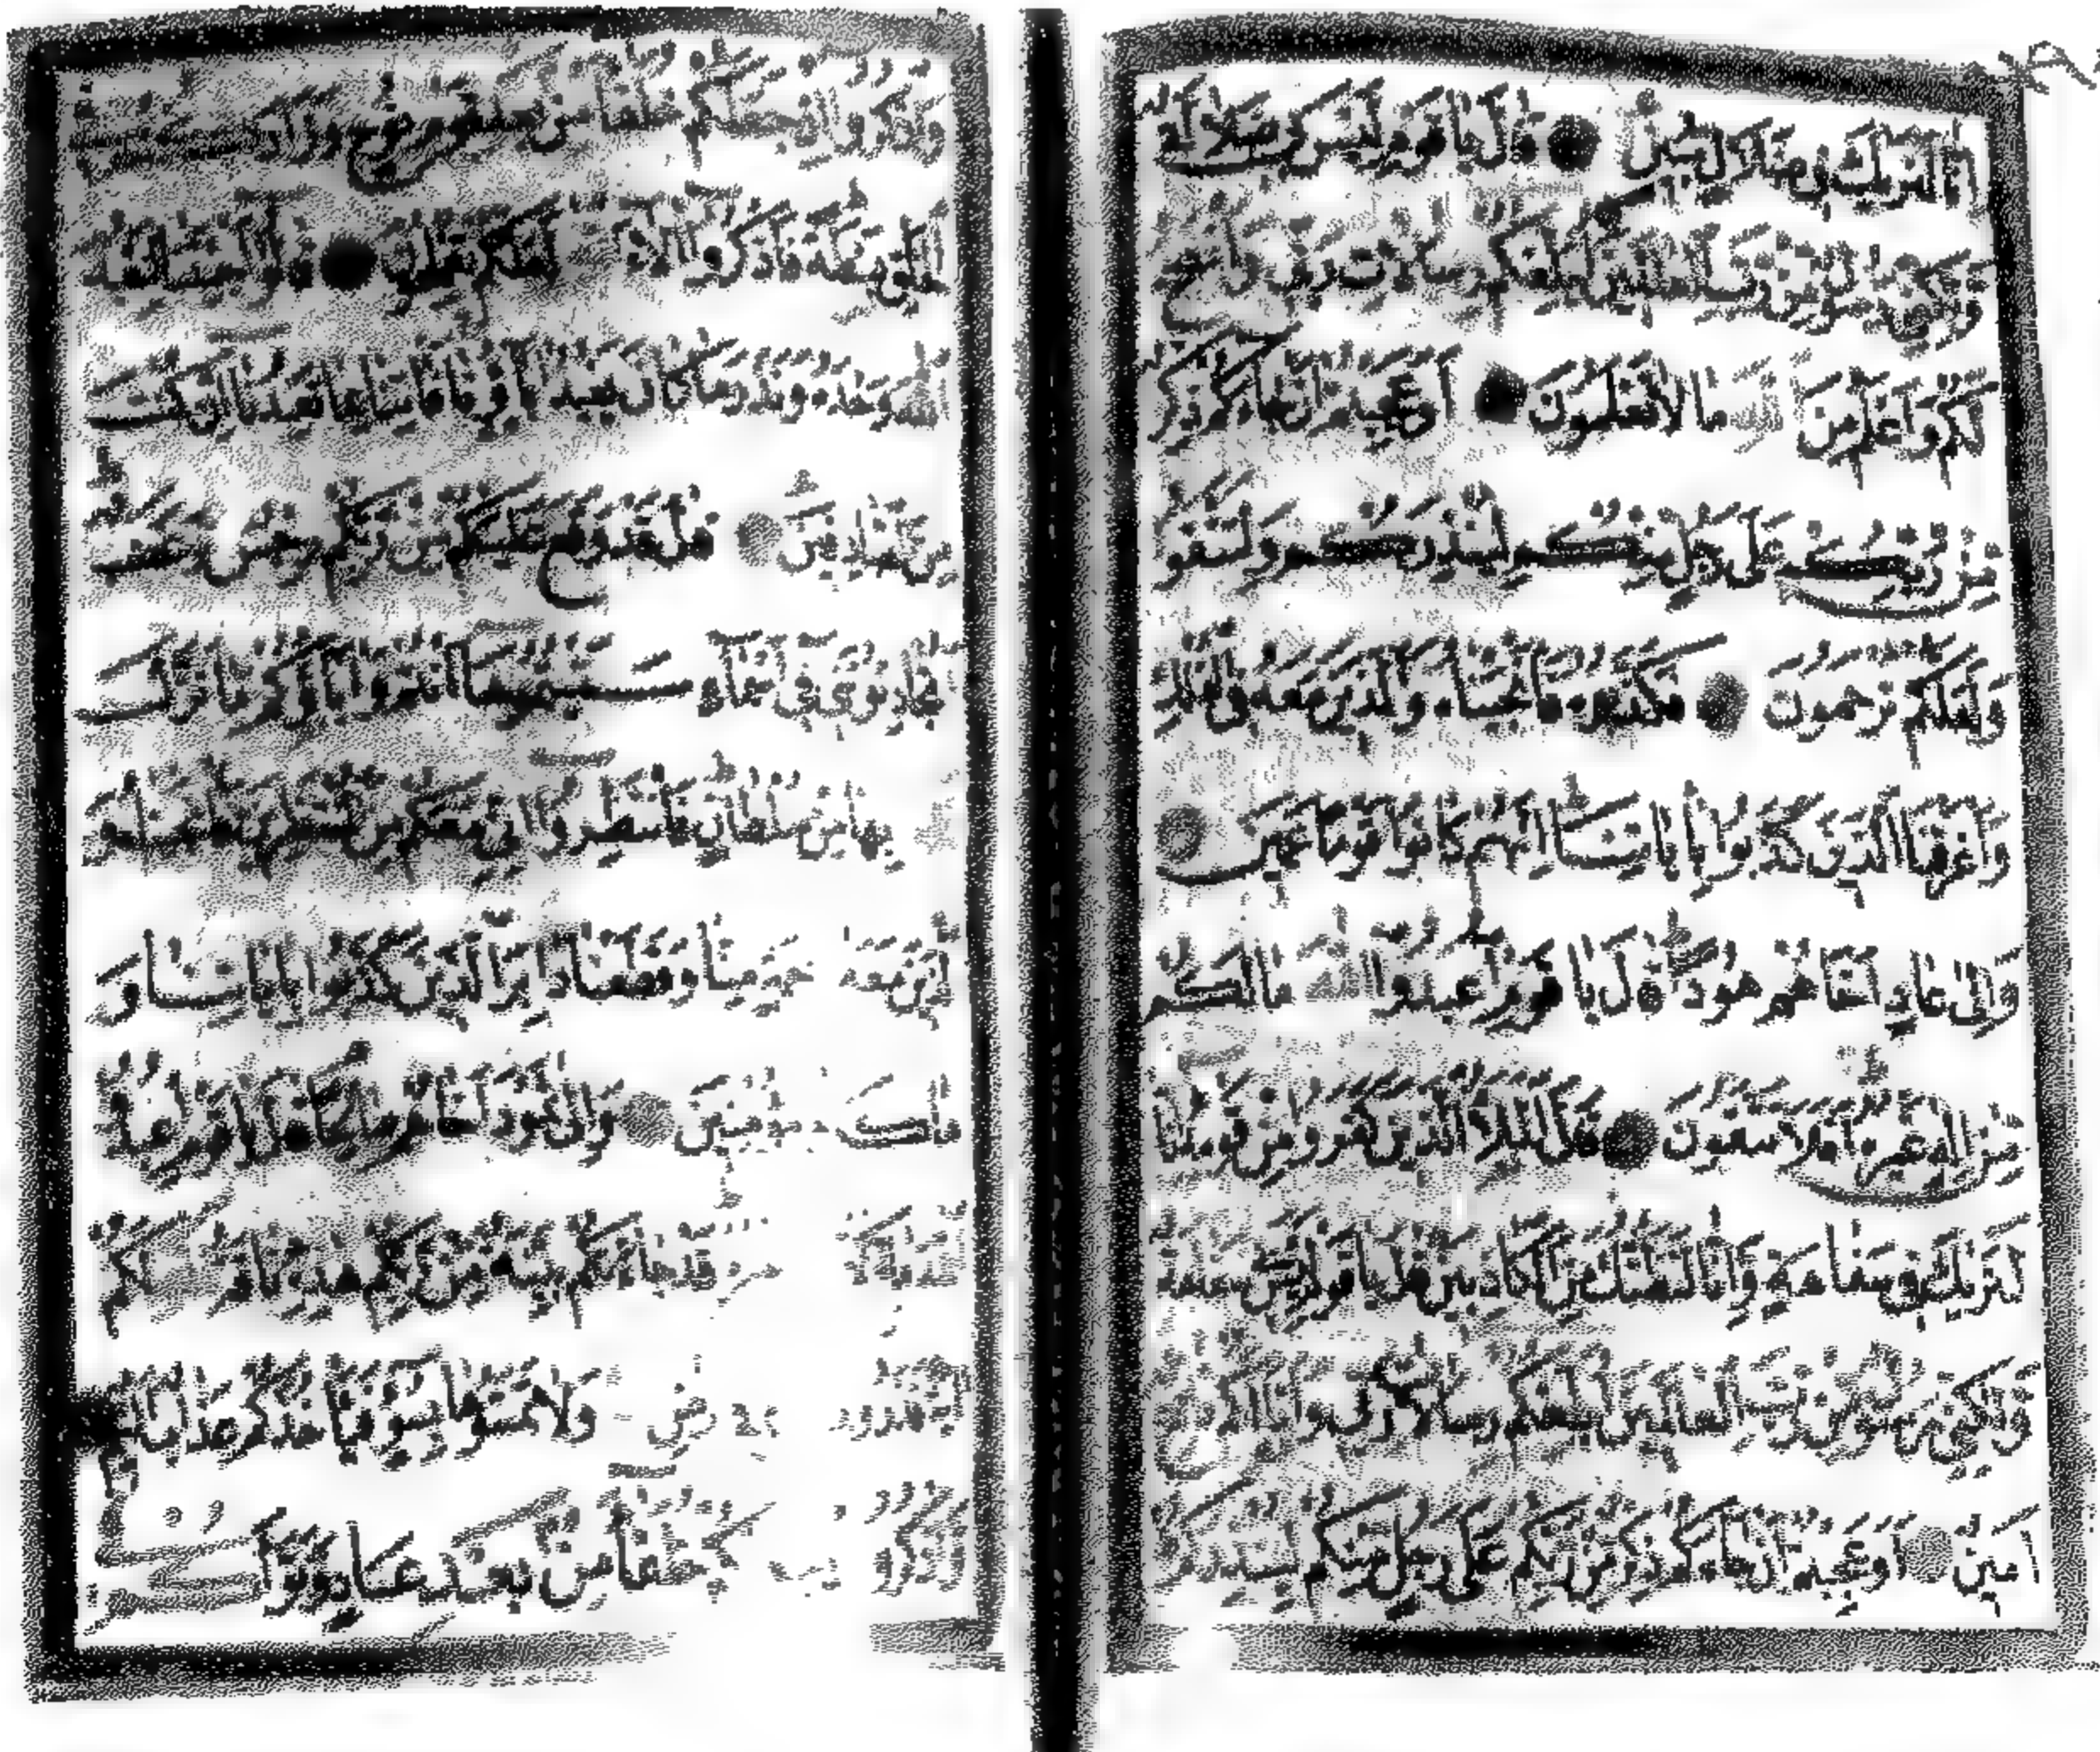 إنا لنراك في ضلال مبين قال يا قوم ليس بي ضلالة
ولكني رسول من رب العالمين أبلغكم رسالات ربي وأنصح
لكم وأعلم من الله ما لا تعلمون أوعجبتم أن جاءكم ذكر
من ربكم على رجل منكم لينذركم ولتتقوا
ولعلكم ترحمون فكذبوه فأنجيناه والذين معه في الفلك
وأغرقنا الذين كذبوا بآياتنا إنهم كانوا قوما عمين
وإلى عاد أخاهم هودا قال يا قوم اعبدوا الله ما لكم
من إله غيره أفلا تتقون قال الملأ الذين كفروا من قومه إنا
لنراك في سفاهة وإنا لنظنك من الكاذبين قال يا قوم ليس بي سفاهة
ولكني رسول من رب العالمين أبلغكم رسالات ربي وأنا لكم ناصح
أمين أوعجبتم أن جاءكم ذكر من ربكم على رجل منكم لينذركم
واذكروا إذ جعلكم خلفاء من بعد قوم نوح وزادكم
في الخلق بسطة فاذكروا آلاء الله لعلكم تفلحون قالوا أجئتنا لنعبد
الله وحده ونذر ما كان يعبد آباؤنا فأتنا بما تعدنا إن كنت
من الصادقين قال قد وقع عليكم من ربكم رجس وغضب
أتجادلونني في أسماء سميتموها أنتم وآباؤكم ما نزل
الله بها من سلطان فانتظروا إني معكم من المنتظرين فأنجيناه
والذين معه برحمة منا وقطعنا دابر الذين كذبوا بآياتنا و
ما كانوا مؤمنين وإلى ثمود أخاهم صالحا قال يا قوم اعبدوا
الله غيره قد جاءتكم بينة من ربكم هذه ناقة الله لكم
فذروها أرض ولا تمسوها بسوء فيأخذكم عذاب أليم
واذكروا خلفاء من بعد عاد وبوأكم